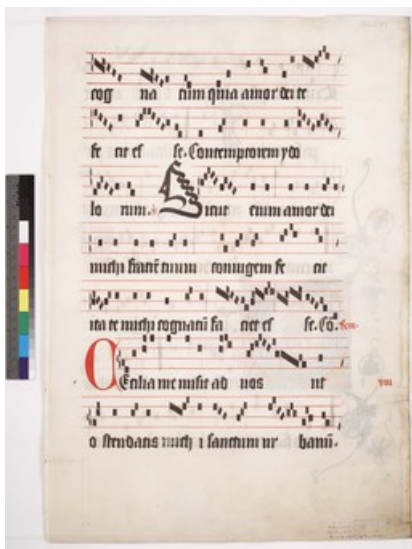 cog na tum quia amor dei te
fe cit es se. Contemptorem ydo
lo rum. Sicut enim amor dei
michi fratrē tuum coniugem fe cit
ita te michi cognatū fa cit es se. Cō.
CEcilia me misit ad uos ut
o stendatis mich i sanctum ur banū.